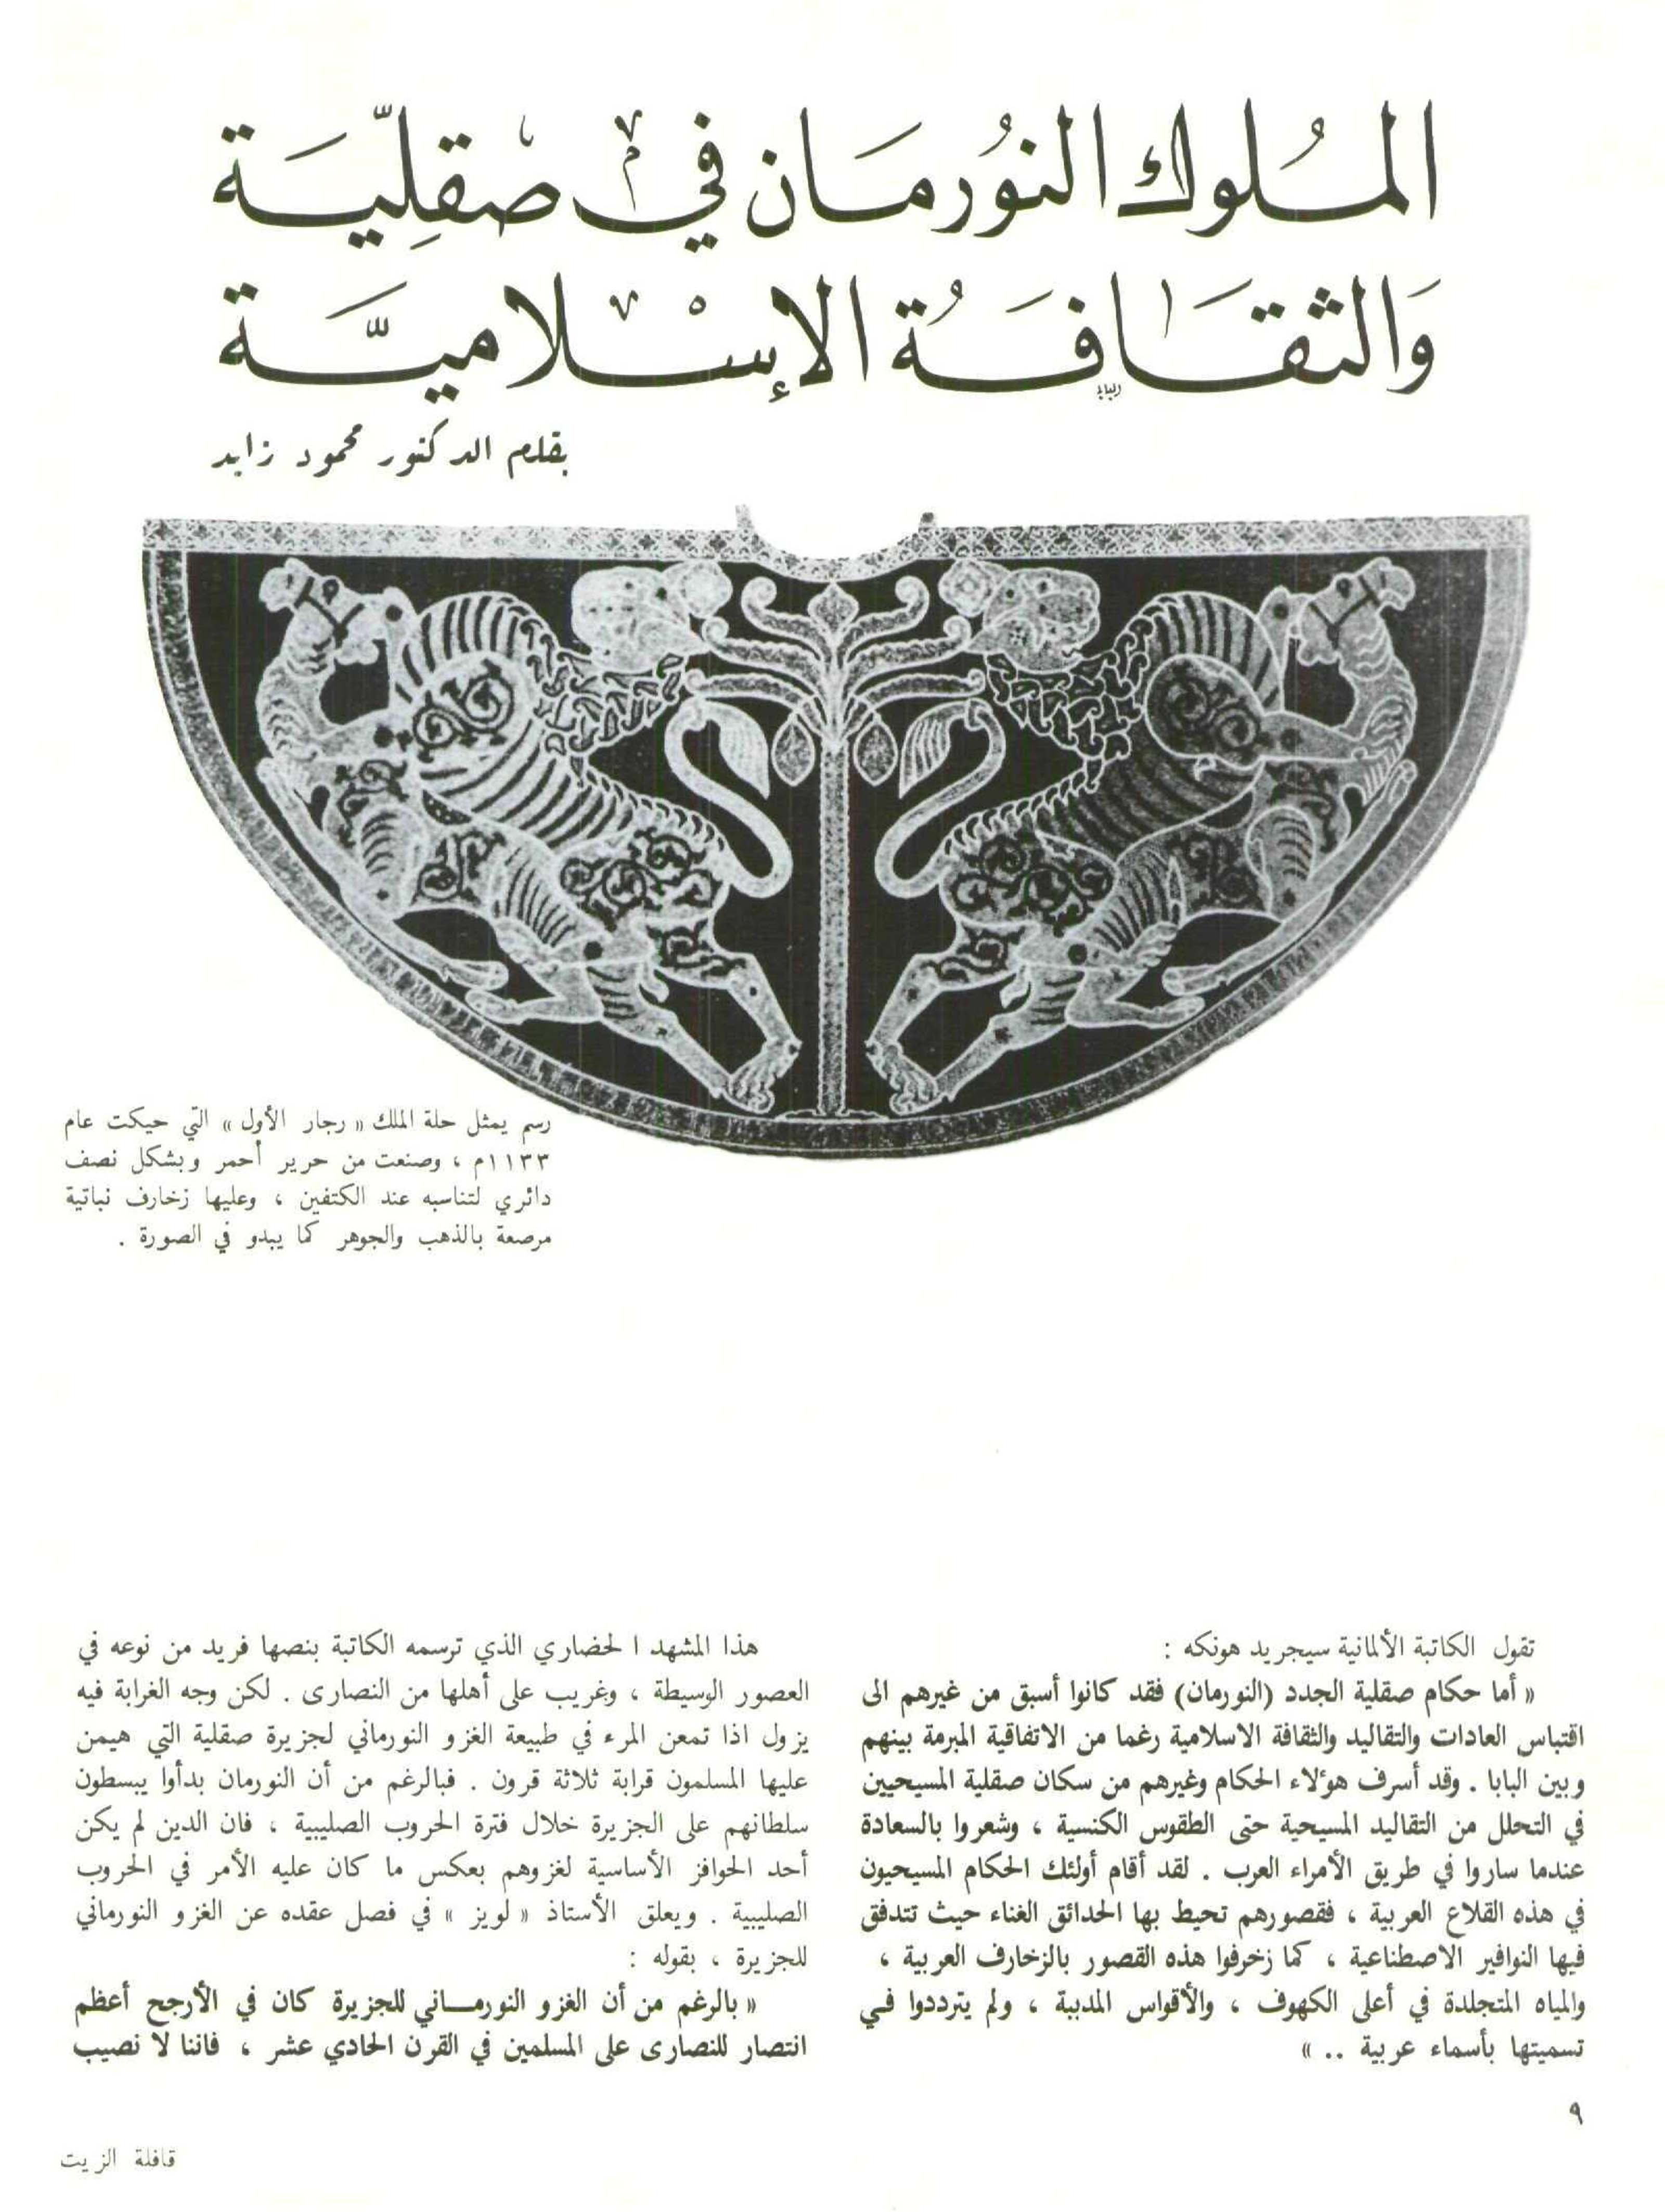 الملوك النورمان في صقلية
والثقافة الإسلامية
بقلم الدكتور محمود زايد
رسم يمثل حلة الملك « رجار الأول » التي حيكت عام
١١٣٣م ، وصنعت من حرير أحمر وبشكل نصف
دائري لتناسبه عند الكتفين ، وعليها زخارف نباتية
مرصعة بالذهب والجوهر كما يبدو في الصورة .
تقول الكاتبة الألمانية سيجريد هونكه :
« أما حكام صقلية الجدد (النورمان) فقد كانوا أسبق من غيرهم الى
اقتباس العادات والتقاليد والثقافة الاسلامية رغما من الاتفاقية المبرمة بينهم
وبين البابا . وقد أسرف هؤلاء الحكام وغيرهم من سكان صقلية المسيحيين
في التحلل من التقاليد المسيحية حتى الطقوس الكنسية ، وشعروا بالسعادة
عندما ساروا في طريق الأمراء العرب . لقد أقام أولئك الحكام المسيحيون
في هذه القلاع العربية ، فقصورهم تحيط بها الحدائق الغناء حيث تتدفق
فيها النوافير الاصطناعية ، كما زخرفوا هذه القصور بالزخارف العربية ،
والمياه المتجلدة في أعلى الكهوف ، والأقواس المدببة ، ولم يترددوا في
تسميتها بأسماء عربية .. »
هذا المشهد الحضاري الذي ترسمه الكاتبة بنصها فريد من نوعه في
العصور الوسيطة ، وغريب على أهلها من النصارى . لكن وجه الغرابة فيه
يزول اذا تمعن المرء في طبيعة الغزو النورماني لجزيرة صقلية التي هيمن
عليها المسلمون قرابة ثلاثة قرون . فبالرغم من أن النورمان بدأوا يبسطون
سلطانهم على الجزيرة خلال فترة الحروب الصليبية ، فان الدين لم يكن
أحد الحوافز الأساسية لغزوهم بعكس ما كان عليه الأمر في الحروب
الصليبية . ويعلق الأستاذ « لويز » في فصل عقده عن الغزو النورماني
للجزيرة ، بقوله :
« بالرغم من أن الغزو النورمـاني للجزيرة كان في الأرجح أعظم
انتصار للنصارى على المسلمين في القرن الحادي عشر ، فاننا لا نصيب
٩
قافلة الزيت